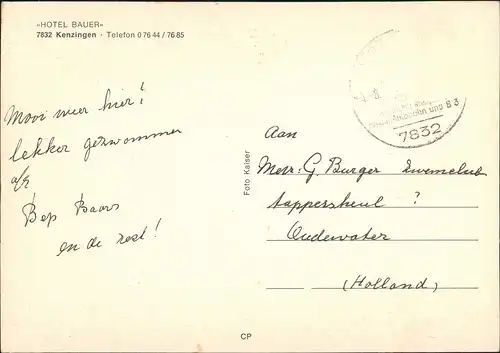 »HOTEL BAUER«
7832 Kenzingen · Telefon 0 76 44 / 76 85
Mooi weer hier!
lekker gezwommen
Bep Baars
en de rest!
Foto Kaiser
CP
und B 3
7832
Aan
Mevr: G. Burger Zwemclub
?
Oudewater
(Holland)